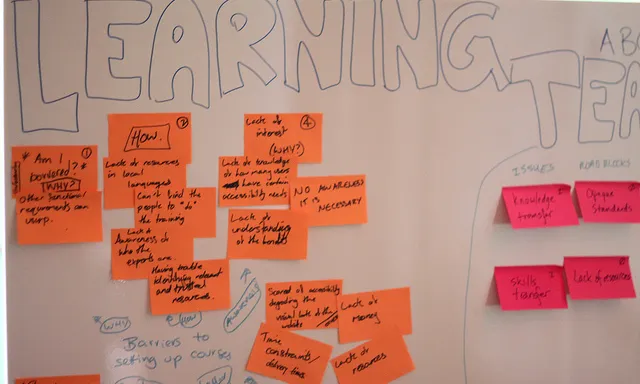 LEARNING
ABO
TEA
ISSUES
ROAD BLOCKS
1
* Am I
bothered!?*
WHY?
other functional
requirements can
usurp.
2
How.
Lack of resources
in local
languages
Can't find the
people to "do"
the training
Lack of
Awareness of
who the
experts are.
Having trouble
identifying relevant
and trusted
resources.
4
Lack of
interest
(WHY?)
Lack of knowledge
of how many users
have certain
accessibility needs
NO AWARENESS
IT IS
NECESSARY
Lack of
understanding
of the benefits
AWARENESS
Scared of accessibility
degrading the
visual look of the
website
Lack of
money
Time
constraints
delivery times
Lack of
resources
* WHY
* How
Barriers to
setting up courses
Knowledge
transfer
Opaque
Standards
Skills
transfer
Lack of resources